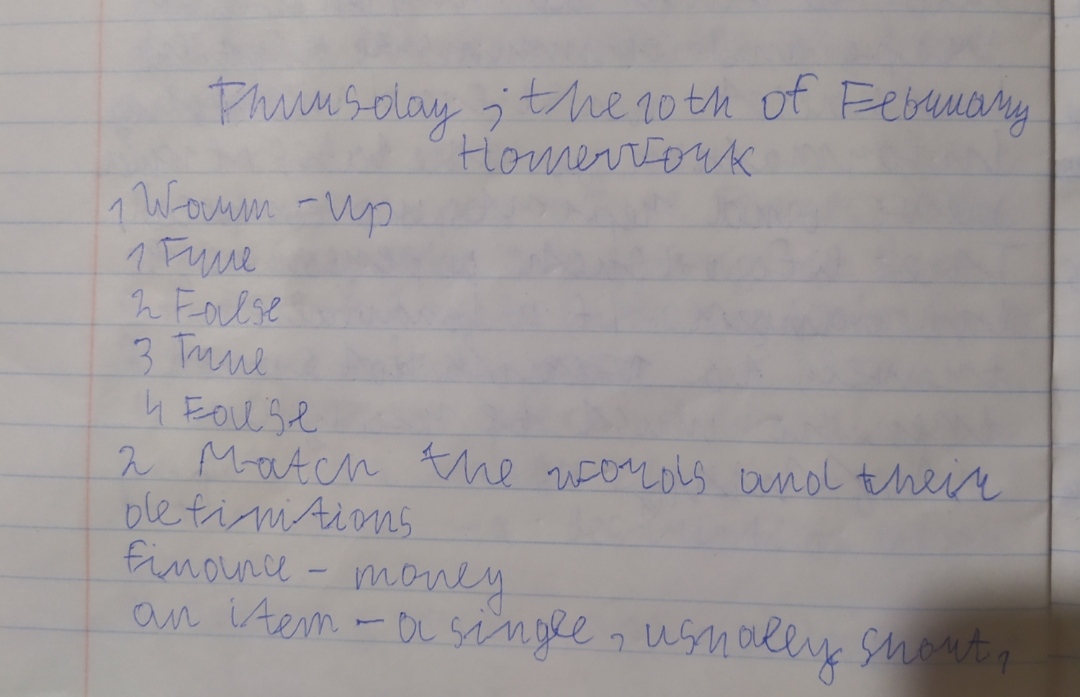 Thursday, the 10th of February
Homework
1 Warm-up
1 True
2 False
3 True
4 False
2 Match the words and their
definitions
finance - money
an item - a single, usually short,